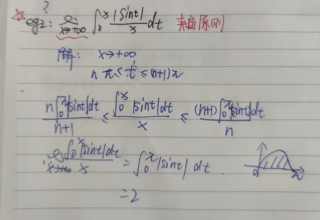 ?
☆ eg2: lim x→+∞ ∫₀ˣ |sint|/x dt 夹逼原则
解: x→+∞
nπ≤t≤(n+1)π
n∫₀^π|sint|dt / n+1 ≤ ∫₀ˣ|sint|dt / x ≤ (n+1)∫₀^π|sint|dt / n
∫₀ˣ|sint|dt / x = ∫₀^π|sint|dt.
=2